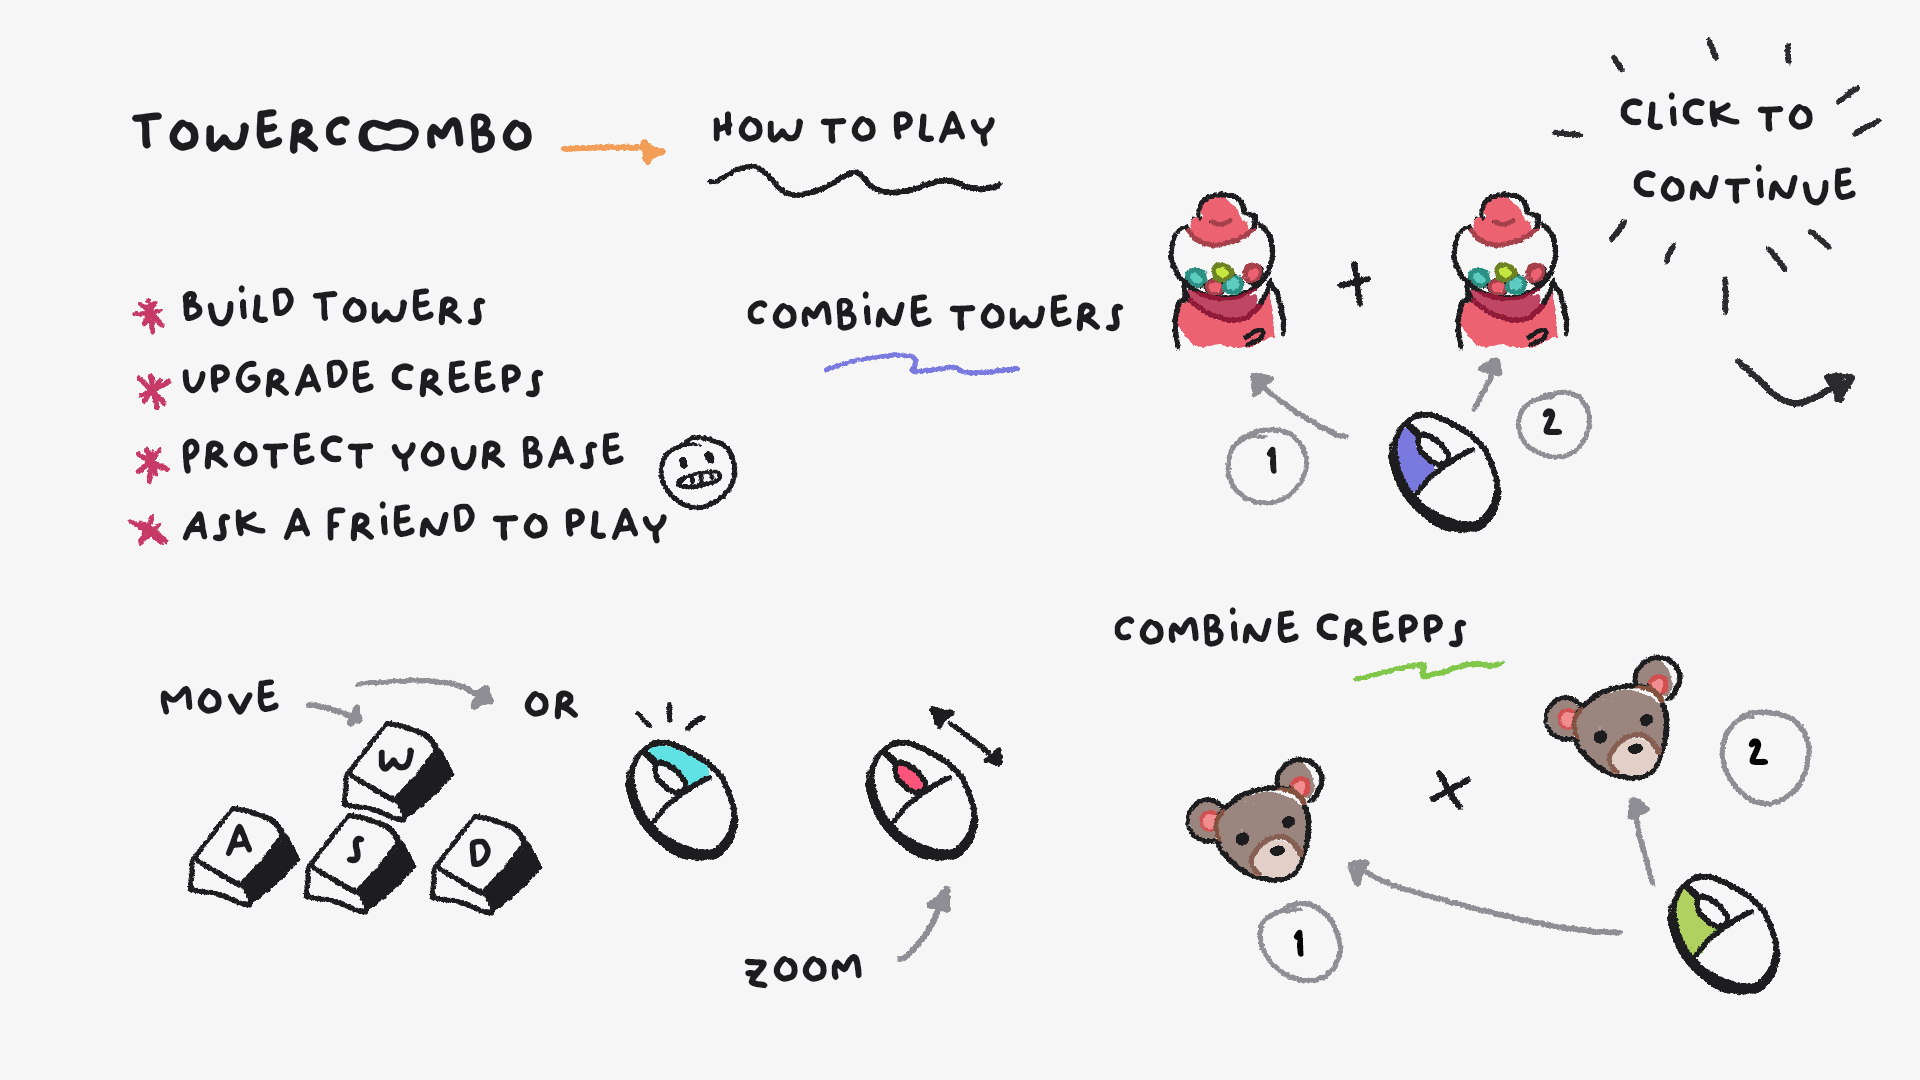 TOWERCOMBO
HOW TO PLAY
CLiCK TO
CONTiNUE
BUiLD TOWERS
UPGRADE CREEPS
PROTECT YOUR BASE
ASK A FRiEND TO PLAY
COMBiNE TOWERS
+
1
2
MOVE
OR
W
A
S
D
ZOOM
COMBiNE CREPPS
×
1
2